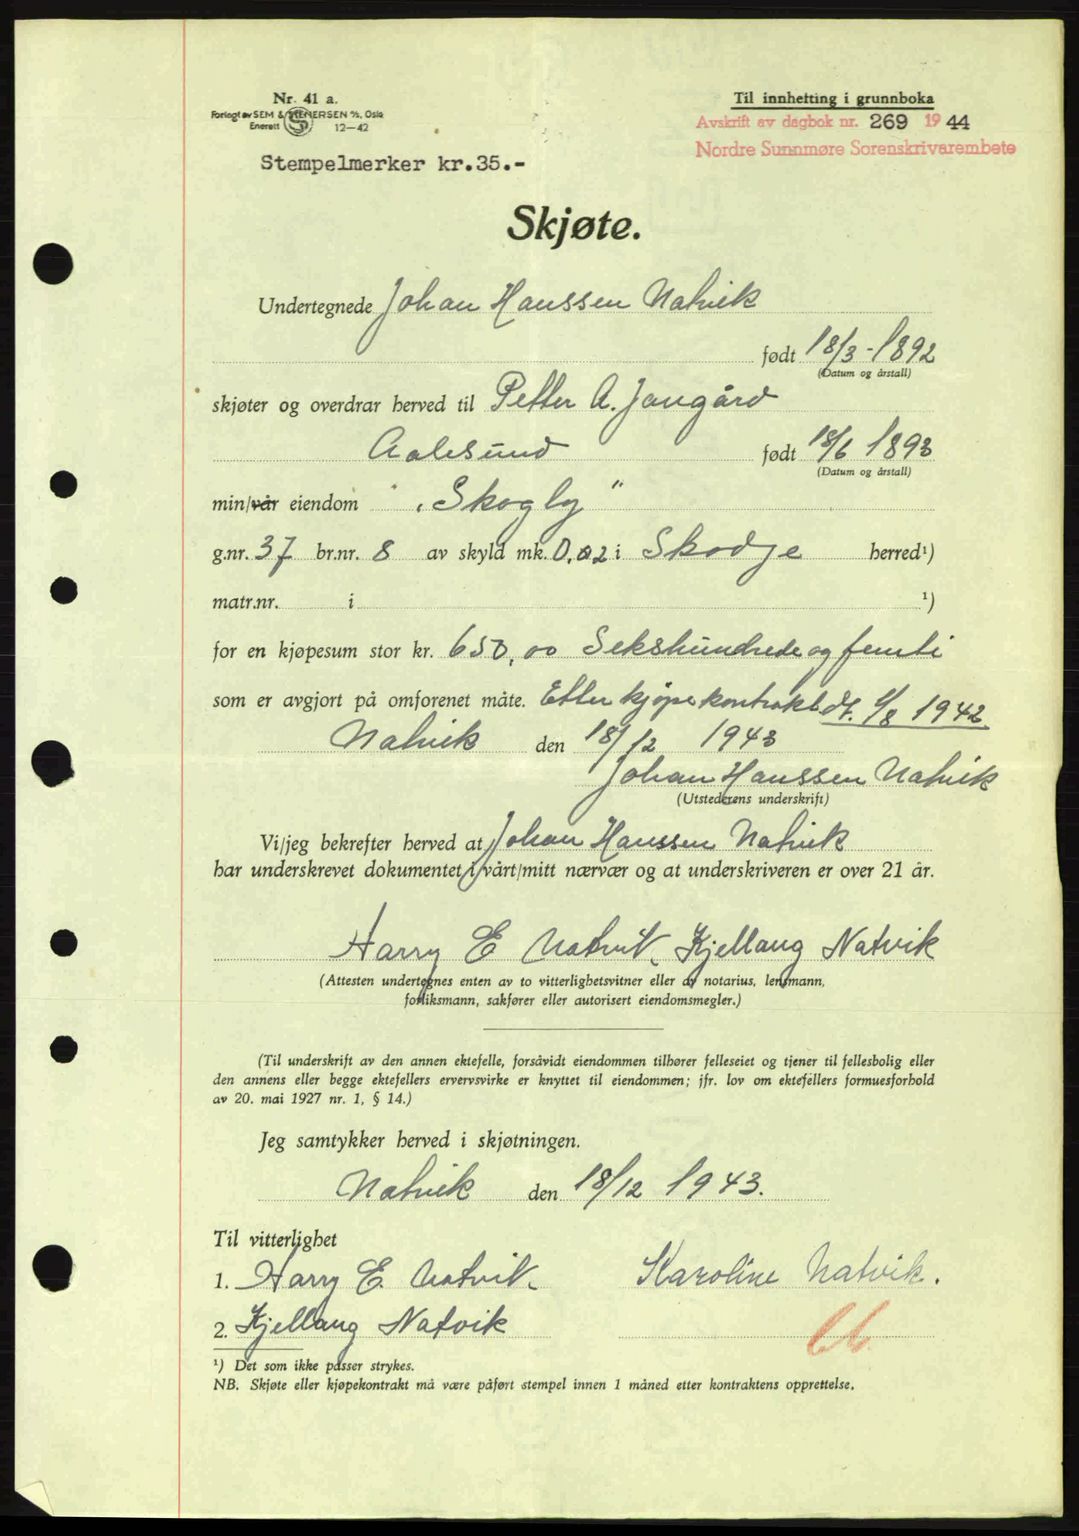 Nr. 41 a.
Forlagt av SEM & STENERSEN A/S, Oslo
Enerett 12—42
Til innhefting i grunnboka
Avskrift av dagbok nr. 269 1944
Nordre Sunnmøre Sorenskrivarembete
Stempelmerker kr.35.-
Skjøte.
Undertegnede Johan Hanssen Natvik
født 18/3-1892
(Datum og årstall)
skjøter og overdrar herved til Petter A. Jangård
Aalesund født 18/6 1893
(Datum og årstall)
min/vår eiendom "Skogly"
g.nr. 37 br.nr. 8 av skyld mk. 0,02 i Skodje herred¹)
matr.nr. i ¹)
for en kjøpesum stor kr. 650,00 Sekshundrede og femti
som er avgjort på omforenet måte. Etter kjøpekontrakt dt. 1/8 1942
Natvik den 18/12 1943
Johan Hanssen Natvik
(Utstederens underskrift)
Vi/jeg bekrefter herved at Johan Hanssen Natvik
har underskrevet dokumentet i vårt/mitt nærvær og at underskriveren er over 21 år.
Harry E Natvik. Kjellaug Natvik
(Attesten undertegnes enten av to vitterlighetsvitner eller av notarius, lensmann,
forliksmann, sakfører eller autorisert eiendomsmegler.)
(Til underskrift av den annen ektefelle, forsåvidt eiendommen tilhører felleseiet og tjener til fellesbolig eller
den annens eller begge ektefellers ervervsvirke er knyttet til eiendommen; jfr. lov om ektefellers formuesforhold
av 20. mai 1927 nr. 1, § 14.)
Jeg samtykker herved i skjøtningen.
Natvik den 18/12 1943.
Til vitterlighet
1. Harry E. Natvik. Karoline Natvik.
2. Kjellaug Natvik
¹) Det som ikke passer strykes.
NB. Skjøte eller kjøpekontrakt må være påført stempel innen 1 måned etter kontraktens opprettelse.